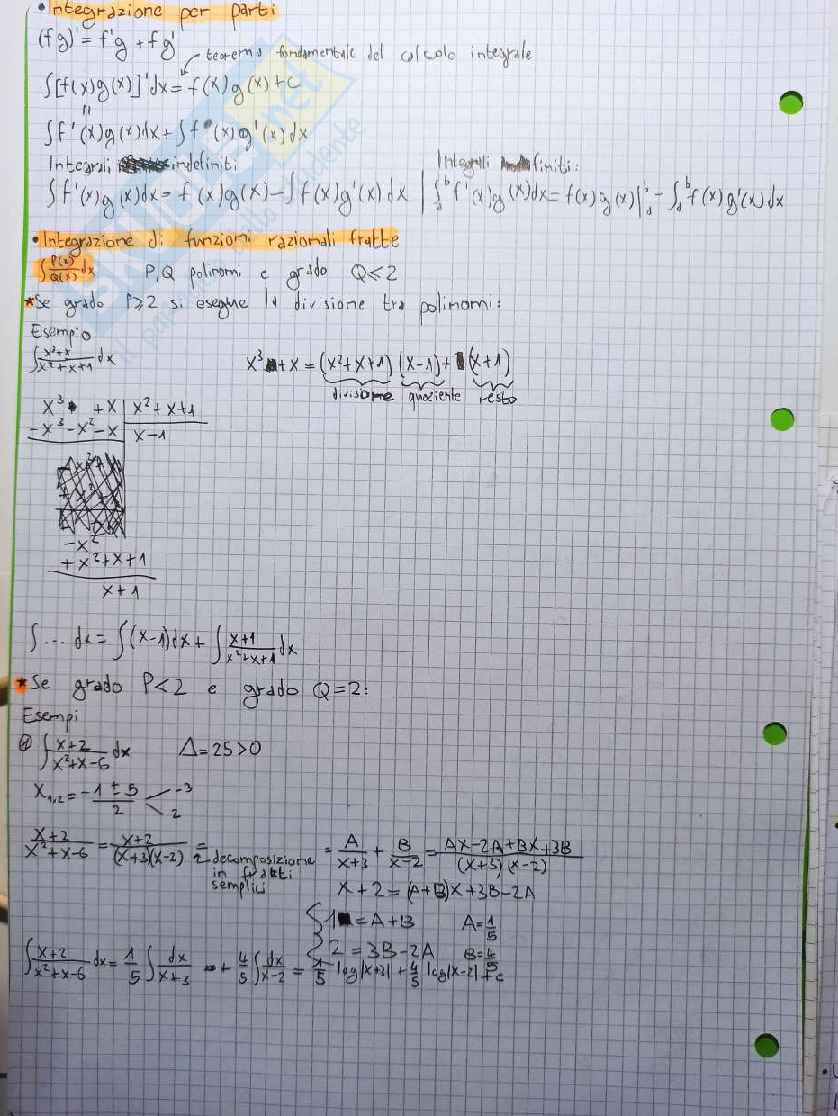 • Integrazione per parti
(fg)' = f'g + fg'
teorema fondamentale del calcolo integrale
∫[f(x)g(x)]'dx = f(x)g(x)+c
"
∫f'(x)g(x)dx + ∫f(x)g'(x)dx
Integrali indefiniti
∫f'(x)g(x)dx = f(x)g(x) - ∫f(x)g'(x)dx
Integrali finiti:
∫ₐᵇ f'(x)g(x)dx = f(x)g(x)|ₐᵇ - ∫ₐᵇ f(x)g'(x)dx
• Integrazione di funzioni razionali fratte
∫P(x)/Q(x) dx P,Q polinomi e grado Q≤2
*Se grado P≥2 si esegue la divisione tra polinomi:
Esempio
∫ (x³+x)/(x²+x+1) dx
x³ + x = (x²+x+1)(x-1) + (x+1)
divisione quoziente resto
x³ +x | x²+x+1
-x³-x²-x | x-1
-x²
+x²+x+1
x+1
∫ ... dx = ∫(x-1)dx + ∫ (x+1)/(x²+x+1) dx
*Se grado P<2 e grado Q=2:
Esempi
∫ (x+2)/(x²+x-6) dx Δ=25>0
x₁,₂ = (-1±5)/2 -3
2
(x+2)/(x²+x-6) = (x+2)/((x+3)(x-2)) = decomposizione in fratti semplici = A/(x+3) + B/(x-2) = (Ax-2A+Bx+3B)/((x+3)(x-2))
x+2 = (A+B)x+3B-2A
{ 1 = A+B A=1/5
2 = 3B-2A B=4/5
∫ (x+2)/(x²+x-6) dx = 1/5 ∫ dx/(x+3) + 4/5 ∫ dx/(x-2) = 1/5 log|x+3| + 4/5 log|x-2| + c